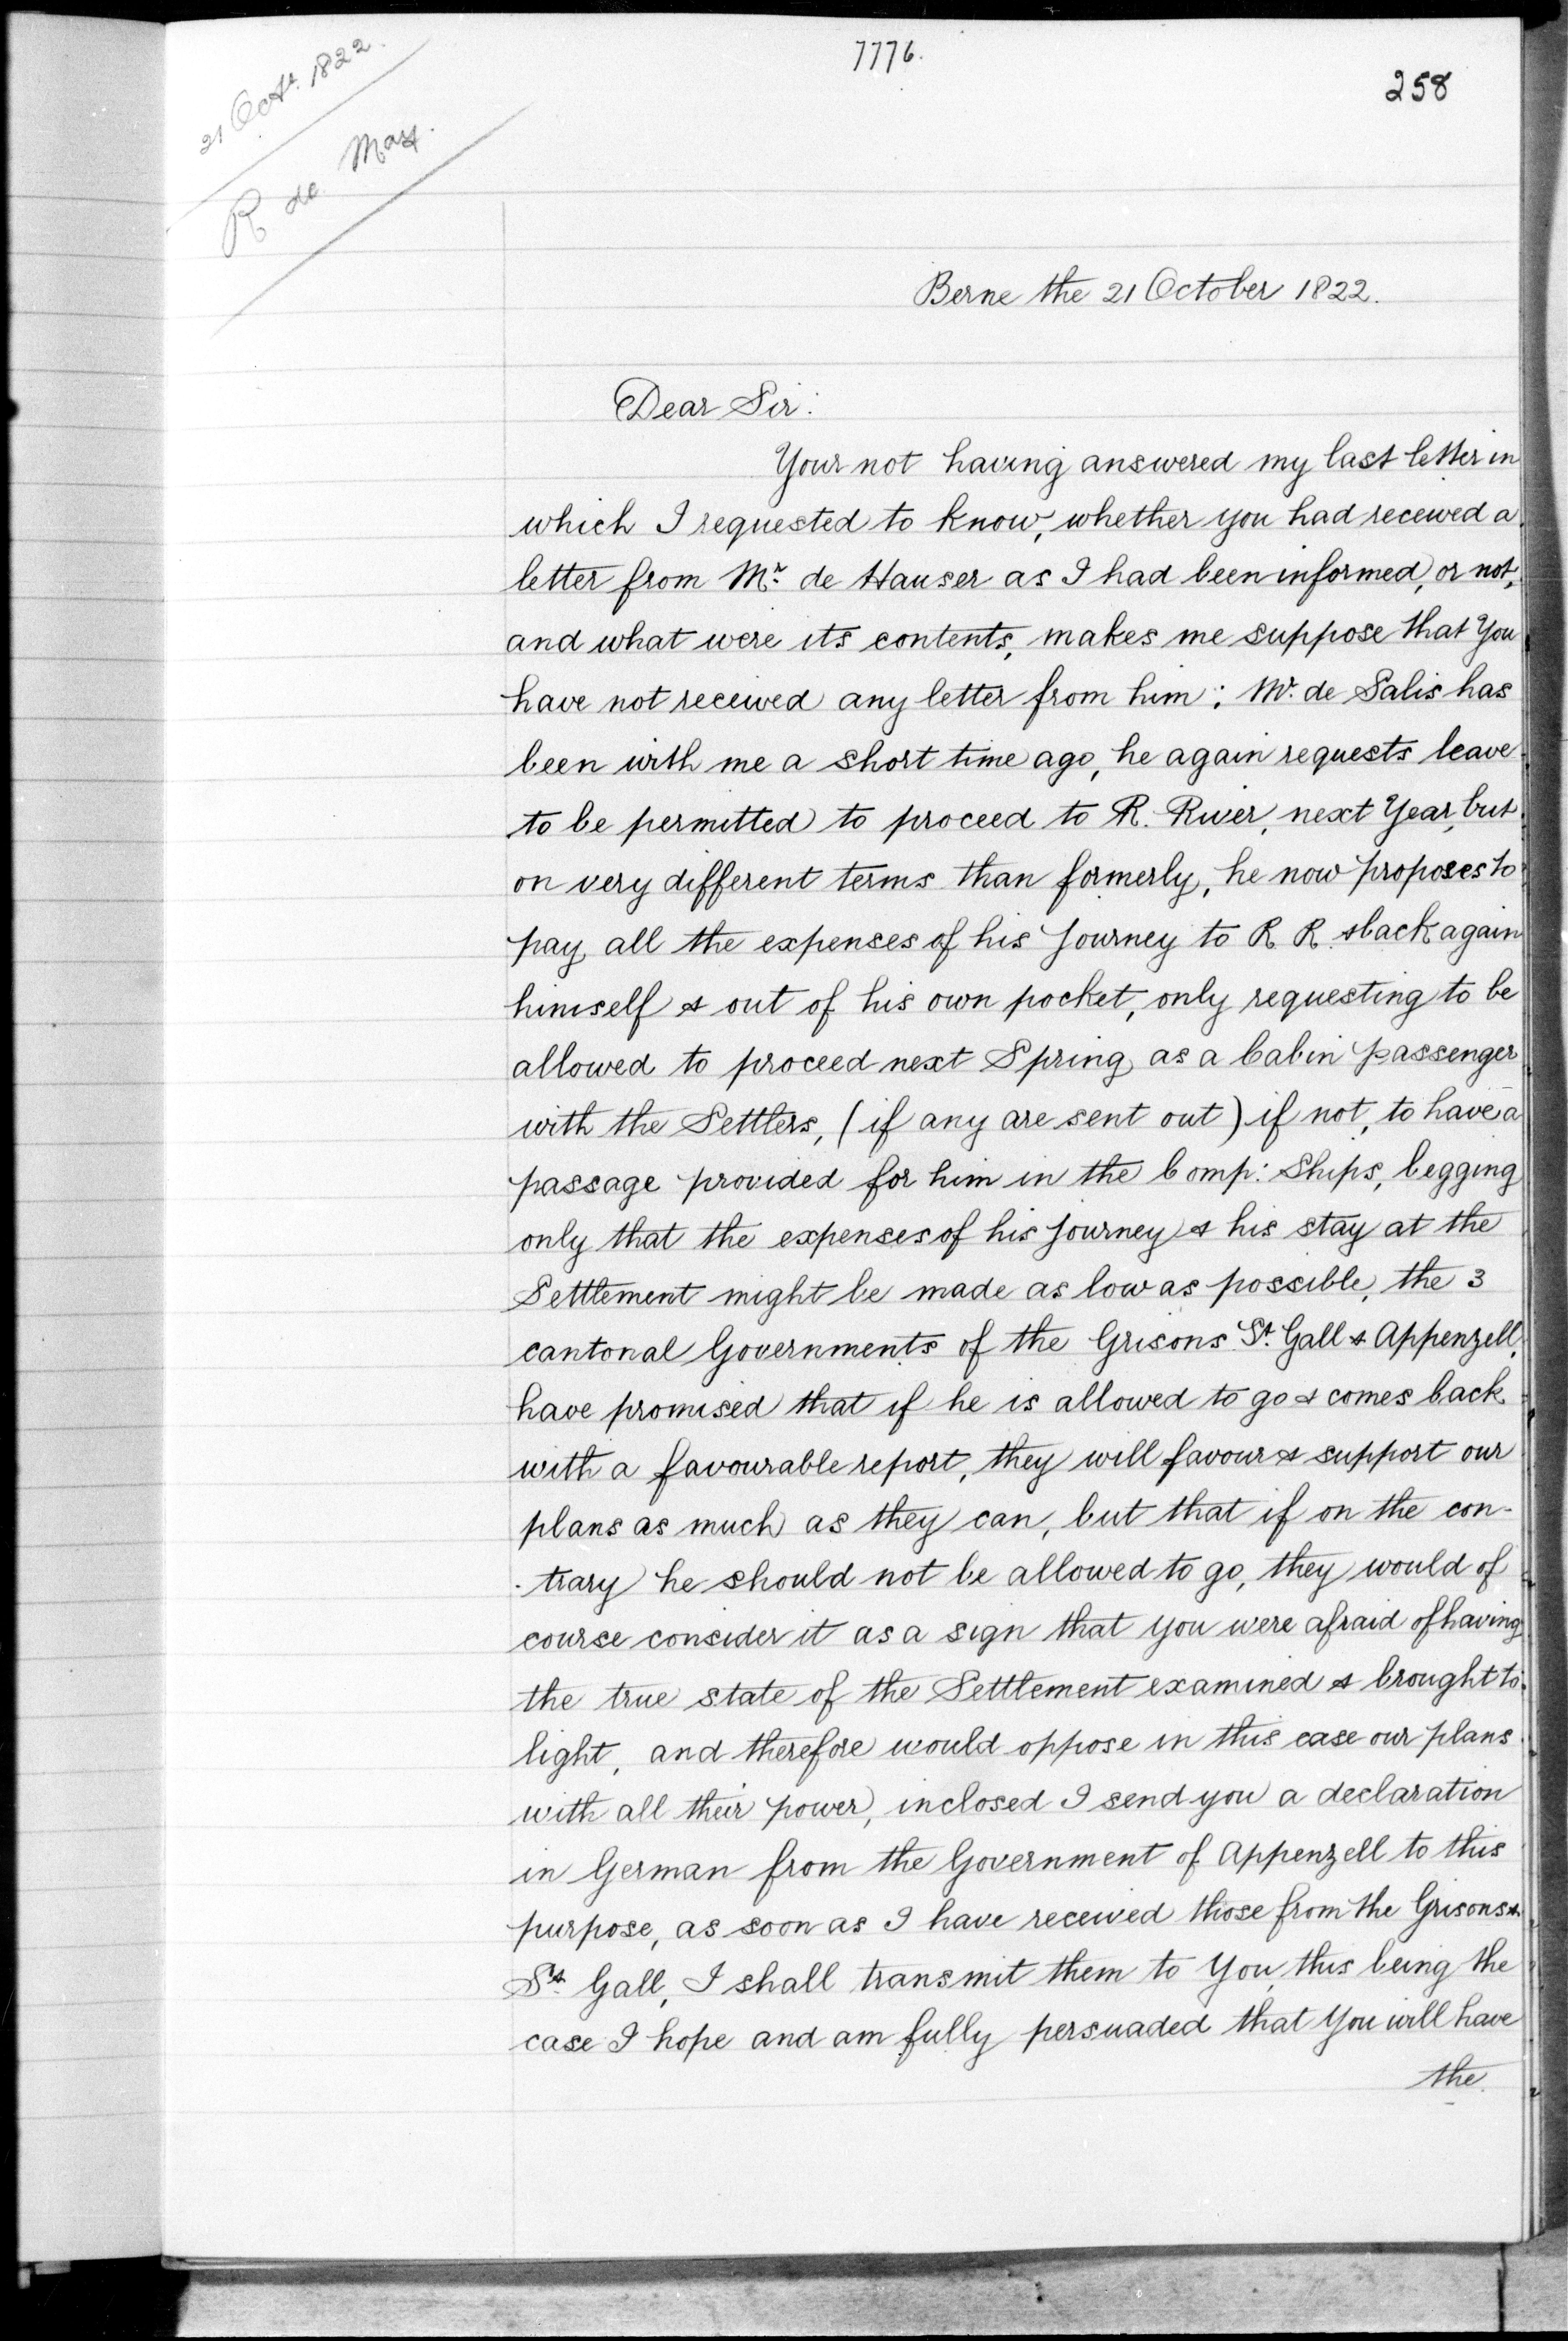 7776.
258
21 Oct. 1822.
R de May.
Berne the 21 October 1822.
Dear Sir:
Your not having answered my last letter in
which I requested to know, whether you had received a
letter from Mr. de Hauser as I had been informed, or not,
and what were its contents, makes me suppose that You
have not received any letter from him; Mr. de Salis has
been with me a short time ago, he again requests leave
to be permitted to proceed to R. River, next Year, but
on very different terms than formerly, he now proposes to
pay all the expenses of his Journey to R. R. & back again
himself & out of his own pocket, only requesting to be
allowed to proceed next Spring as a Cabin passenger
with the Settlers, (if any are sent out) if not, to have a
passage provided for him in the Comp: Ships, begging
only that the expenses of his Journey & his stay at the
Settlement might be made as low as possible, the 3
cantonal Governments of the Grisons St. Gall & Appenzell,
have promised that if he is allowed to go & comes back
with a favourable report, they will favour & support our
plans as much as they can, but that if on the con-
-trary he should not be allowed to go, they would of
course consider it as a sign that you were afraid of having
the true state of the Settlement examined & brought to
light, and therefore would oppose in this case our plans
with all their power, inclosed I send you a declaration
in German from the Government of Appenzell to this
purpose, as soon as I have received those from the Grisons &
St. Gall, I shall transmit them to You, this being the
case I hope and am fully persuaded that You will have
the